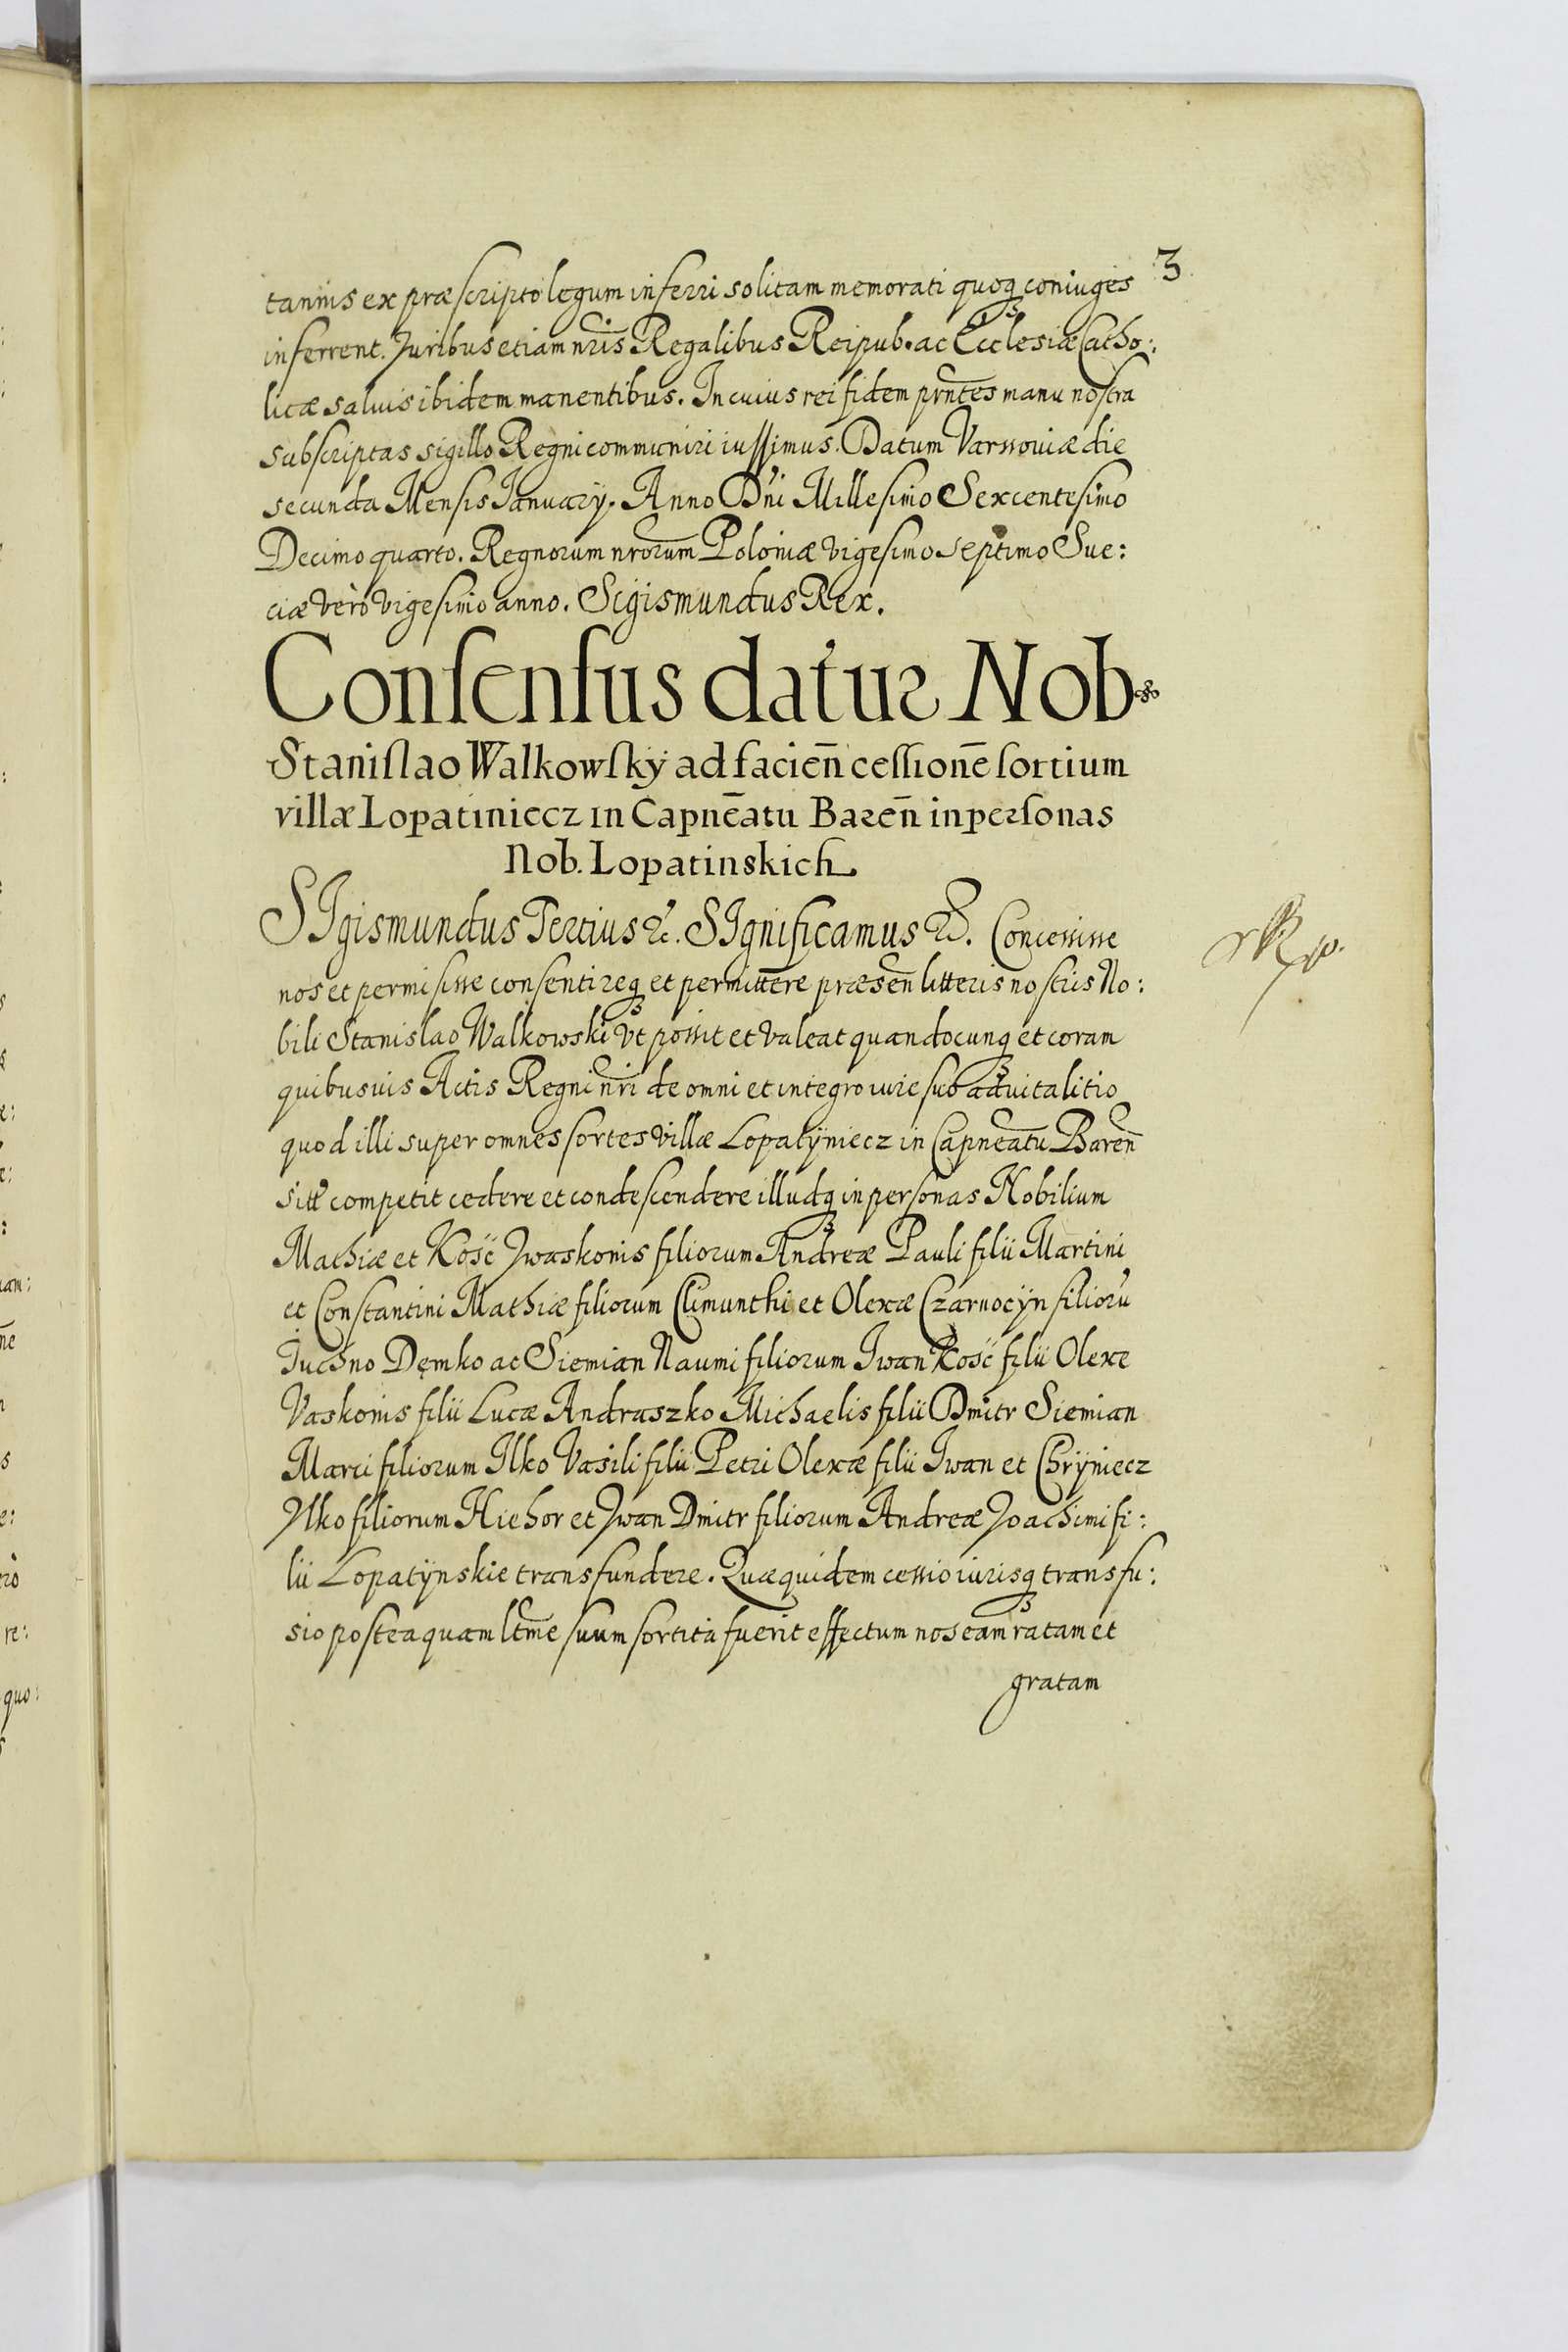 3
tannis ex præscripto legum inferri solitam memorati quoqꝫ coniuges
inferrent. Juribus etiam nris Regalibus Reipub. ac Ecclesiæ Catho:
licæ saluis ibidem manentibus. In cuius rei fidem prntes manu nostra
subscriptas sigillo Regni communiri iussimus. Datum Varssouiæ die
secunda Mensis Ianuarÿ. Anno Dni Millesimo Sexcentesimo
Decimo quarto. Regnorum nrorum Poloniæ vigesimo septimo Sue:
ciæ verò vigesimo anno. Sigismundus Rex.
Consensus datus Nob.
Stanislao Walkowskÿ ad facien̄ cessionē sortium
villæ Lopatiniecz in Capnēatu Baren̄ in personas
Nob. Lopatinskich
SIgismundus Tertius &c. SIgnificamus &c. Concessisse
nos et permisisse consentireqꝫ et permittere præsen̄ litteris nostris No:
bili Stanislao Walkowski vt possit et valeat quandocunqꝫ et coram
quibusuis Actis Regni nri de omni et integro iure suo aduitalitio
quod illi super omnes sortes villæ Lopatÿniecz in Capneatu Baren̄
sitē competit cedere et condescendere illudqꝫ in personas Nobilium
Mathiæ et Kość Jwaskonis filiorum Andreæ Pauli filii Martini
et Constantini Mathiæ filiorum Climunthi et Olexæ Czarnocÿn filiorū
Juchno Demko ac Siemian Naumi filiorum Iwan Kość filii Olexe
Vaskonis filii Lucæ Andraszko Michaelis filii Dmitr Siemian
Marci filiorum Ilko Vasili filii Petri Olexæ filii Iwan et Chrÿniecz
Ylko filiorum Hiehor et Jwan Dmitr filiorum Andreæ Joachimi fi:
lii Lopatÿnskie transfundere. Quæquidem cessio iurisqꝫ transfu:
sio posteaquam ltme suum sortita fuerit effectum nos eam ratam et
gratam